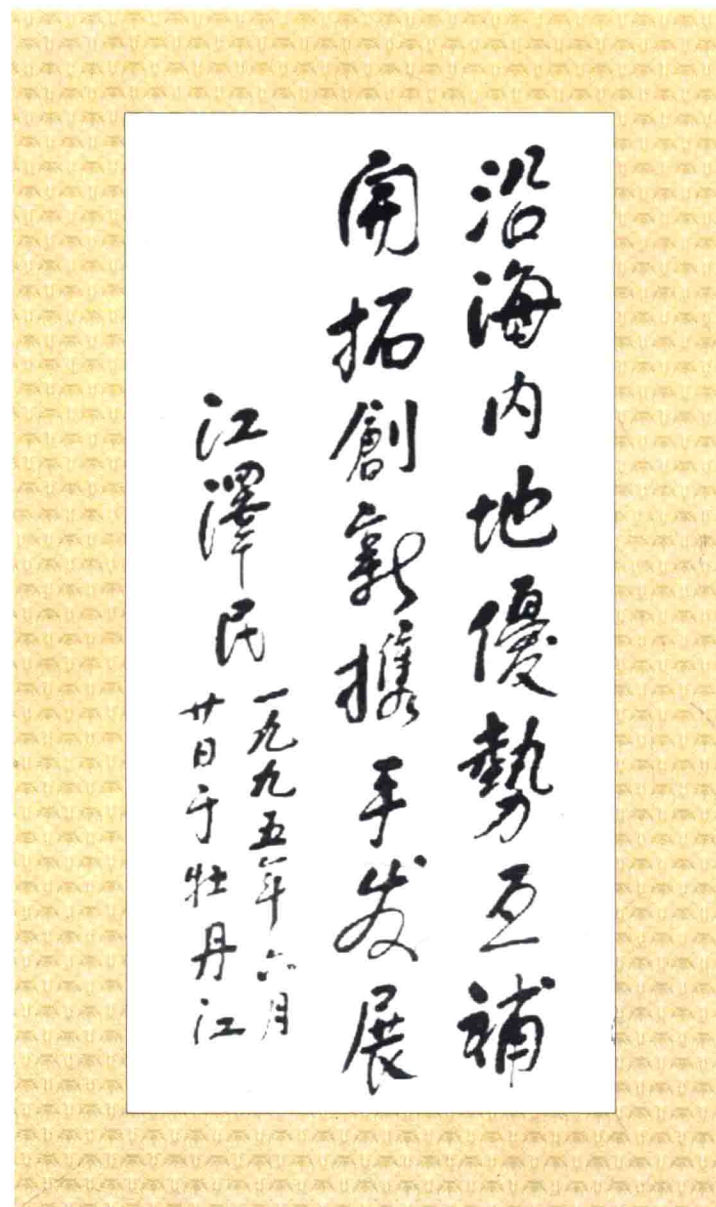 沿海内地優勢互補
開拓創新携手发展
江澤民
一九九五年六月
廿日于牡丹江